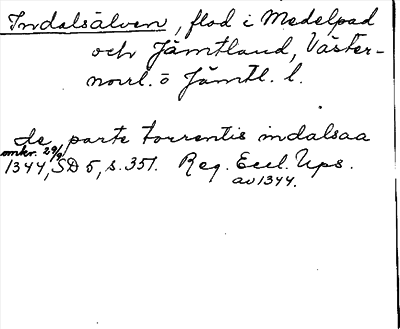 Indalsälven, flod i Medelpad
och Jämtland, Väster-
norrl. o Jämtl. l.
de parte torrentis indalsaa
omkr. 29/9
1344, SD 5, s. 351. Reg. Eccl. Ups.
av 1344.